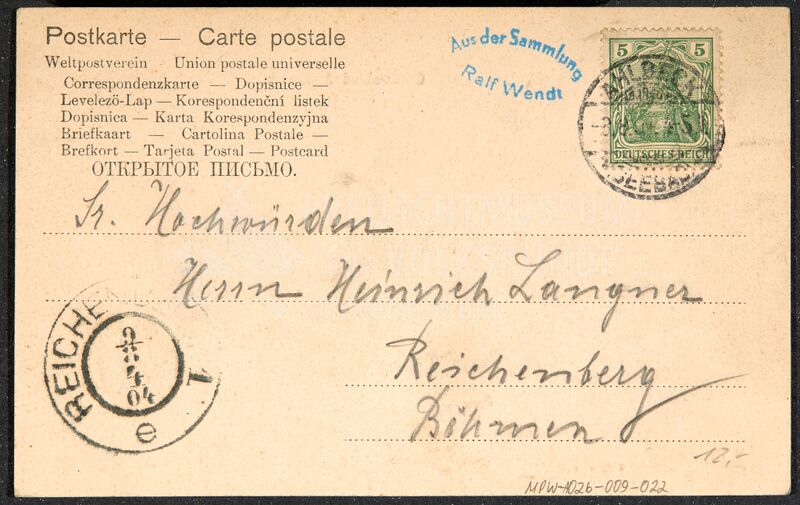 Postkarte — Carte postale
Weltpostverein — Union postale universelle
Correspondenzkarte — Dopisnice —
Levelezō-Lap — Korespondenční listek
Dopisnica — Karta Korespondenzyjna
Briefkaart — Cartolina Postale —
Brefkort — Tarjeta Postal — Postcard
ОТКРЫТОЕ ПИСЬМО.
Aus der Sammlung
Ralf Wendt
5 5
DEUTSCHES REICH
AHLBECK
SEEBAD
Sr. Hochwürden
Herrn Heinrich Langner
Reichenberg
Böhmen
REICHE 1
04
e
12,-
MPW-A026-009-022